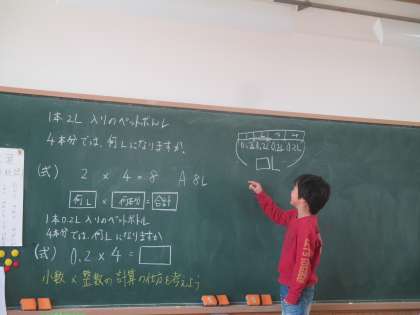 1本2L入りのペットボトル
4本分では、何Lになりますか。
(式) 2 × 4 = 8 A 8L
何L × 何本分 = 合計
1本0.2L入りのペットボトル
4本分では、何Lになりますか
(式) 0.2 × 4 = □
小数×整数の計算の仕方を考えよう
1 2 3 4
0.2L 0.2L 0.2L 0.2L
□L